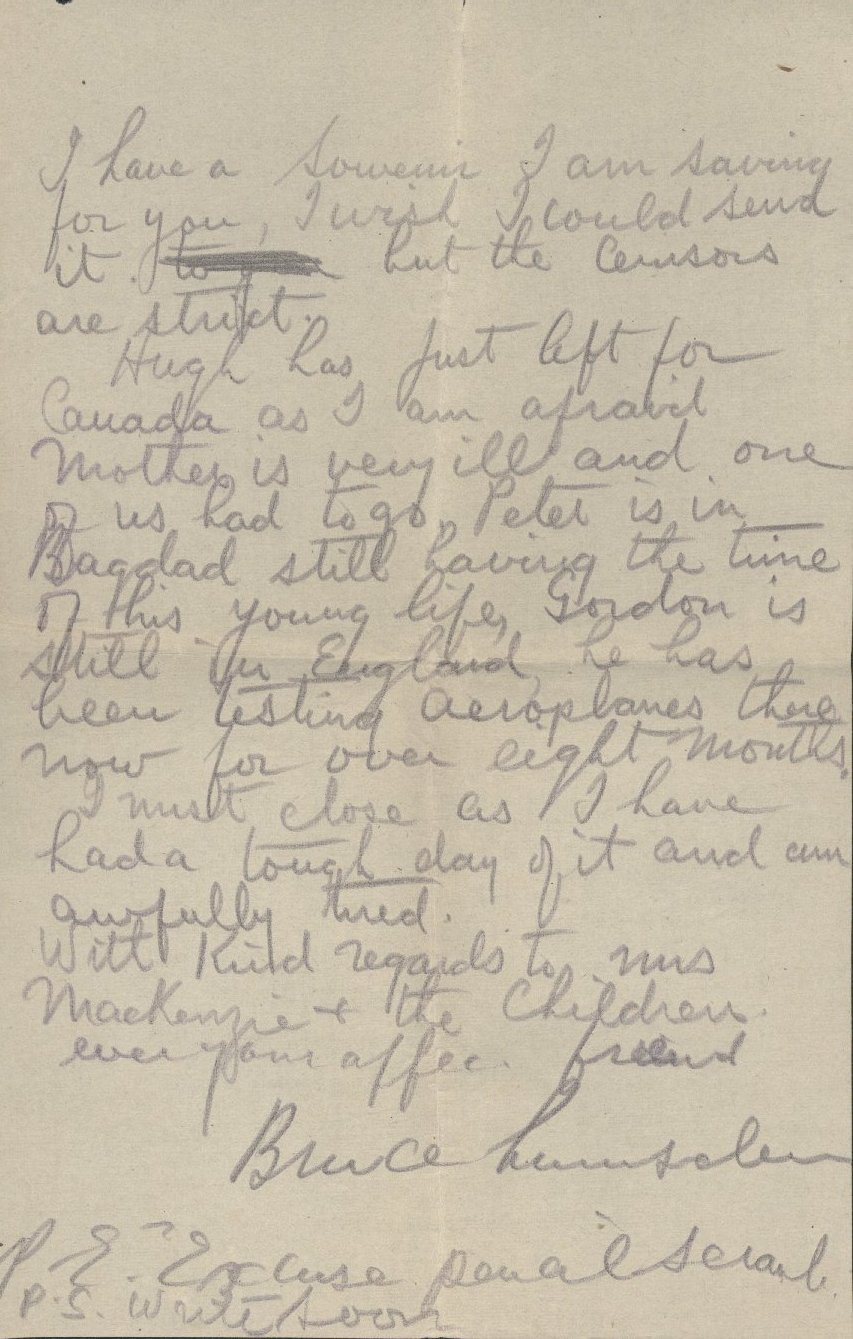 I have a Souvenir I am saving
for you, I wish I could send
it. to you but the Censors
are strict.
Hugh has just left for
Canada as I am afraid
Mother is very ill and one
of us had to go. Peter is in
Bagdad still having the time
of his young life, Gordon is
still in England, he has
been testing aeroplanes there
now for over eight months.
I must close as I have
had a tough day of it and am
awfully tired.
With Kind regards to Mrs
MacKenzie + the Children.
ever your affec. friend
Bruce Lumsden
P.S. Excuse pencil scrawl.
P.S. Write soon